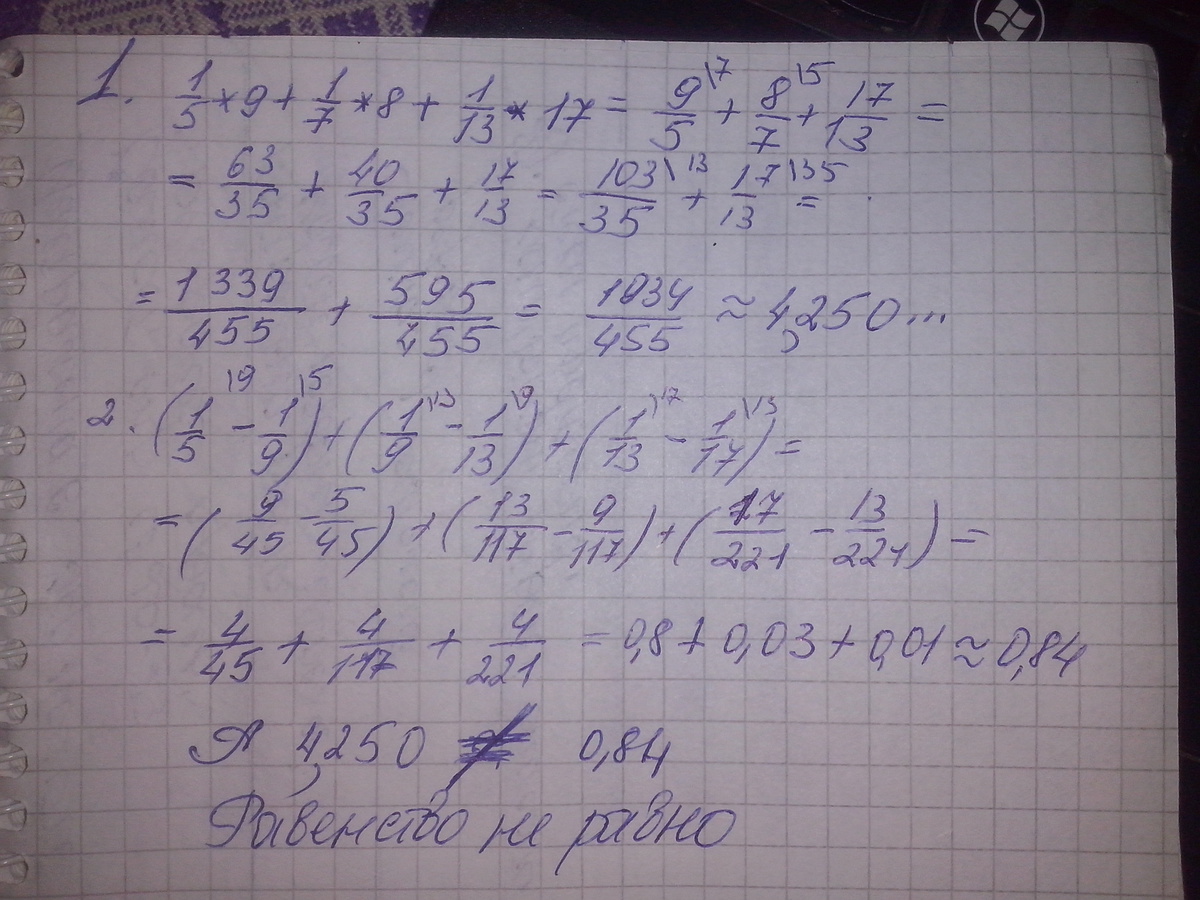 1. 1/5 * 9 + 1/7 * 8 + 1/13 * 17 = 9\7/5 + 8\5/7 + 17/13 =
= 63/35 + 40/35 + 17/13 = 103\13/35 + 17\35/13 =
= 1339/455 + 595/455 = 1934/455 ≈ 4,250...
2. (1\9/5 - 1\5/9) + (1\13/9 - 1\9/13) + (1\17/13 - 1\13/17) =
= (9/45 - 5/45) + (13/117 - 9/117) + (17/221 - 13/221) =
= 4/45 + 4/117 + 4/221 = 0,8 + 0,03 + 0,01 ≈ 0,84
А 4,250 ≠ 0,84
Равенство не равно